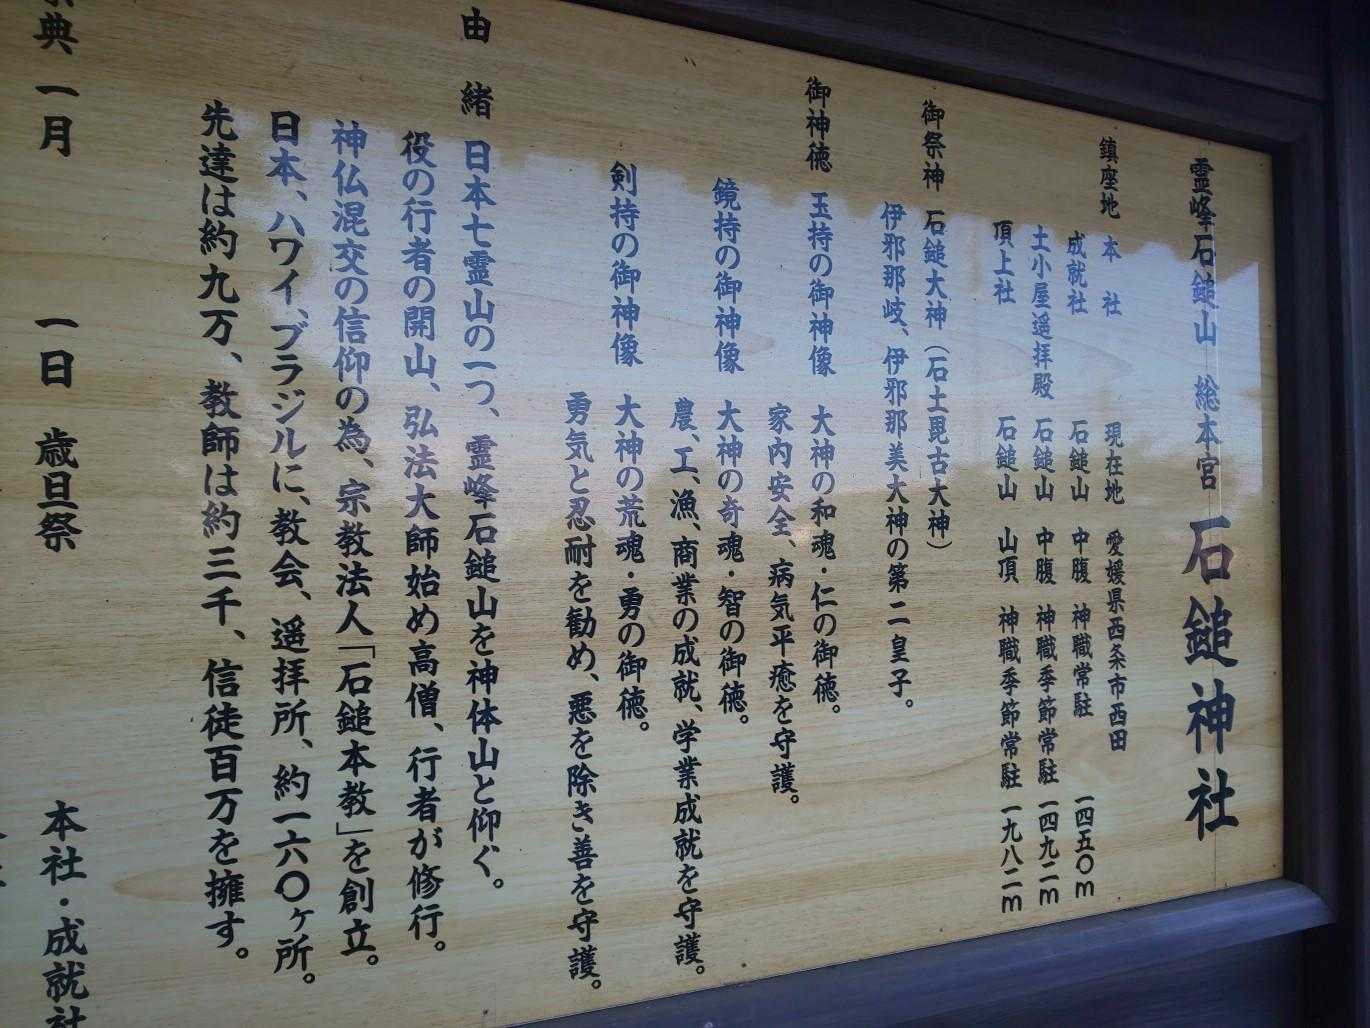 霊峰石鎚山 総本宮 石鎚神社
鎮座地 本 社 現在地 愛媛県西条市西田
成就社 石鎚山 中腹 神職常駐 一四五〇m
土小屋遥拝殿 石鎚山 中腹 神職季節常駐 一四九二m
頂上社 石鎚山 山頂 神職季節常駐 一九八二m
御祭神 石鎚大神（石土毘古大神）
伊邪那岐、伊邪那美大神の第二皇子。
御神徳 玉持の御神像 大神の和魂・仁の御徳。
家内安全、病気平癒を守護。
鏡持の御神像 大神の奇魂・智の御徳。
農、工、漁、商業の成就、学業成就を守護。
剣持の御神像 大神の荒魂・勇の御徳。
勇気と忍耐を勧め、悪を除き善を守護。
由 緒 日本七霊山の一つ、霊峰石鎚山を神体山と仰ぐ。
役の行者の開山、弘法大師始め高僧、行者が修行。
神仏混交の信仰の為、宗教法人「石鎚本教」を創立。
日本、ハワイ、ブラジルに、教会、遥拝所、約一六〇ヶ所。
先達は約九万、教師は約三千、信徒百万を擁す。
典 一月 一日 歳旦祭 本社・成就社